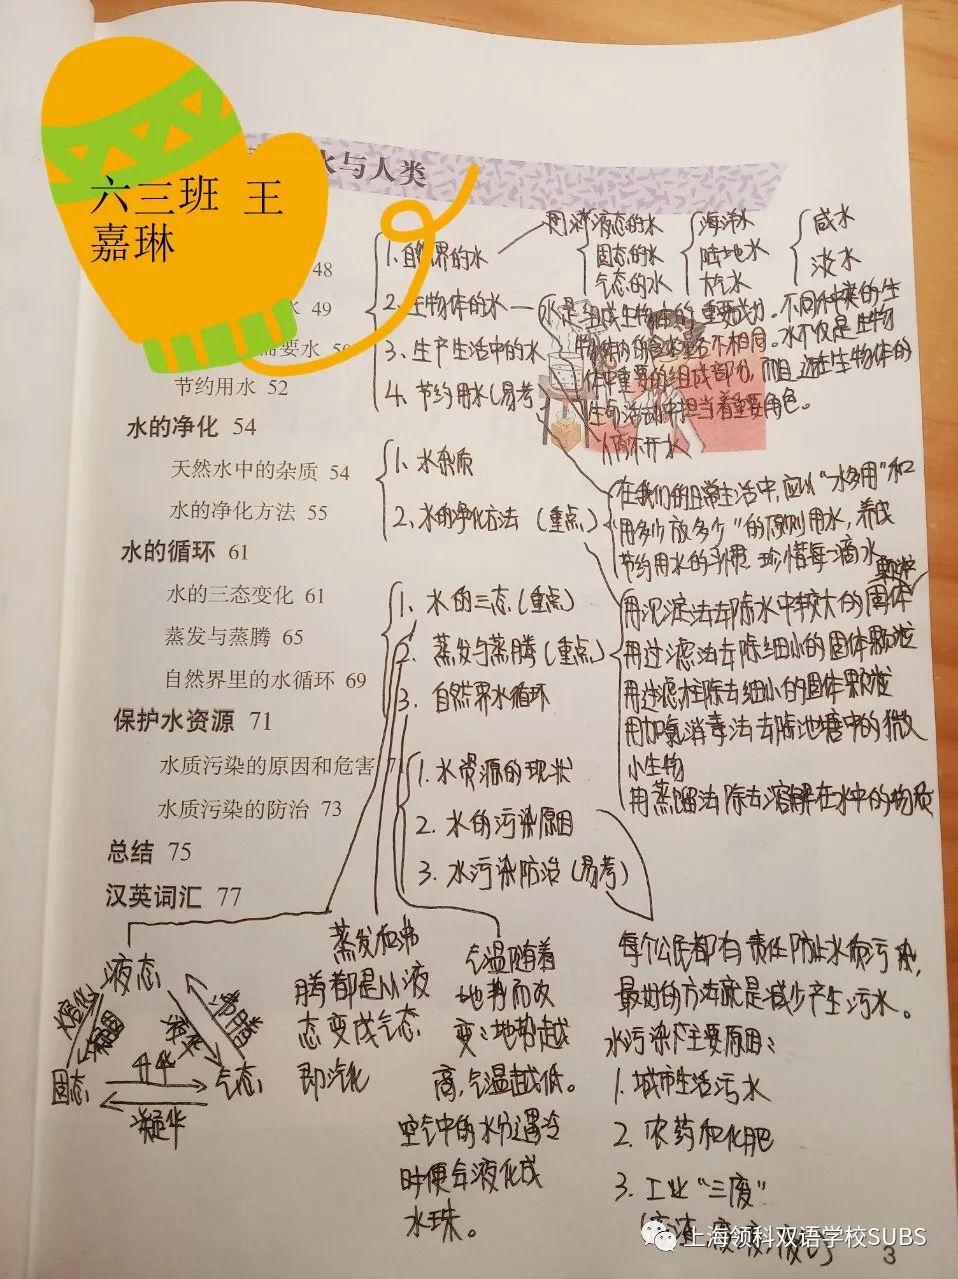 水与人类
六三班 王
嘉琳
48
水 49
需要水
节约用水 52
水的净化 54
天然水中的杂质 54
水的净化方法 55
水的循环 61
水的三态变化 61
蒸发与蒸腾 65
自然界里的水循环 69
保护水资源 71
水质污染的原因和危害
水质污染的防治 73
总结 75
汉英词汇 77
1. 自然界的水
液态的水
固态的水
气态的水
海洋水
陆地水
大气水
咸水
淡水
2. 生物体的水
水是组成生物体的重要成分。不同种类的生
物体内的含水量各不相同。水不仅是生物
体中重要的组成部分,而且还在生物体的
生命活动中担当着重要角色。
人离不开水
3. 生产生活中的水
4. 节约用水(易考
在我们的日常生活中,应以“一水多用”和
“用多少放多少”的原则用水,养成
节约用水的习惯 珍惜每一滴水
1. 水杂质
2. 水的净化方法 (重点)
用沉淀法去除水中较大的固体
颗粒
用过滤法去除细小的固体颗粒
用过滤柱除去细小的固体颗粒
用加氯消毒法去除池塘中的微
小生物
用蒸馏法除去溶解在水中的物质
1. 水的三态(重点)
2. 蒸发与蒸腾(重点)
3. 自然界水循环
1. 水资源的现状
2. 水的污染原因
3. 水污染防治(易考)
液态
固态
气态
熔化
凝固
沸腾
升华
凝华
蒸发和沸
腾都是从液
态变成气态
即汽化
气温随着
地势而改
变:地势越
高,气温越低。
空气中的水分遇冷
时便会液化成
水珠。
每个公民都有责任防止水质污染,
最好的方法就是减少产生污水。
水污染主要原因:
1. 城市生活污水
2. 农药和化肥
3. 工业“三废”
上海领科双语学校SUBS
3